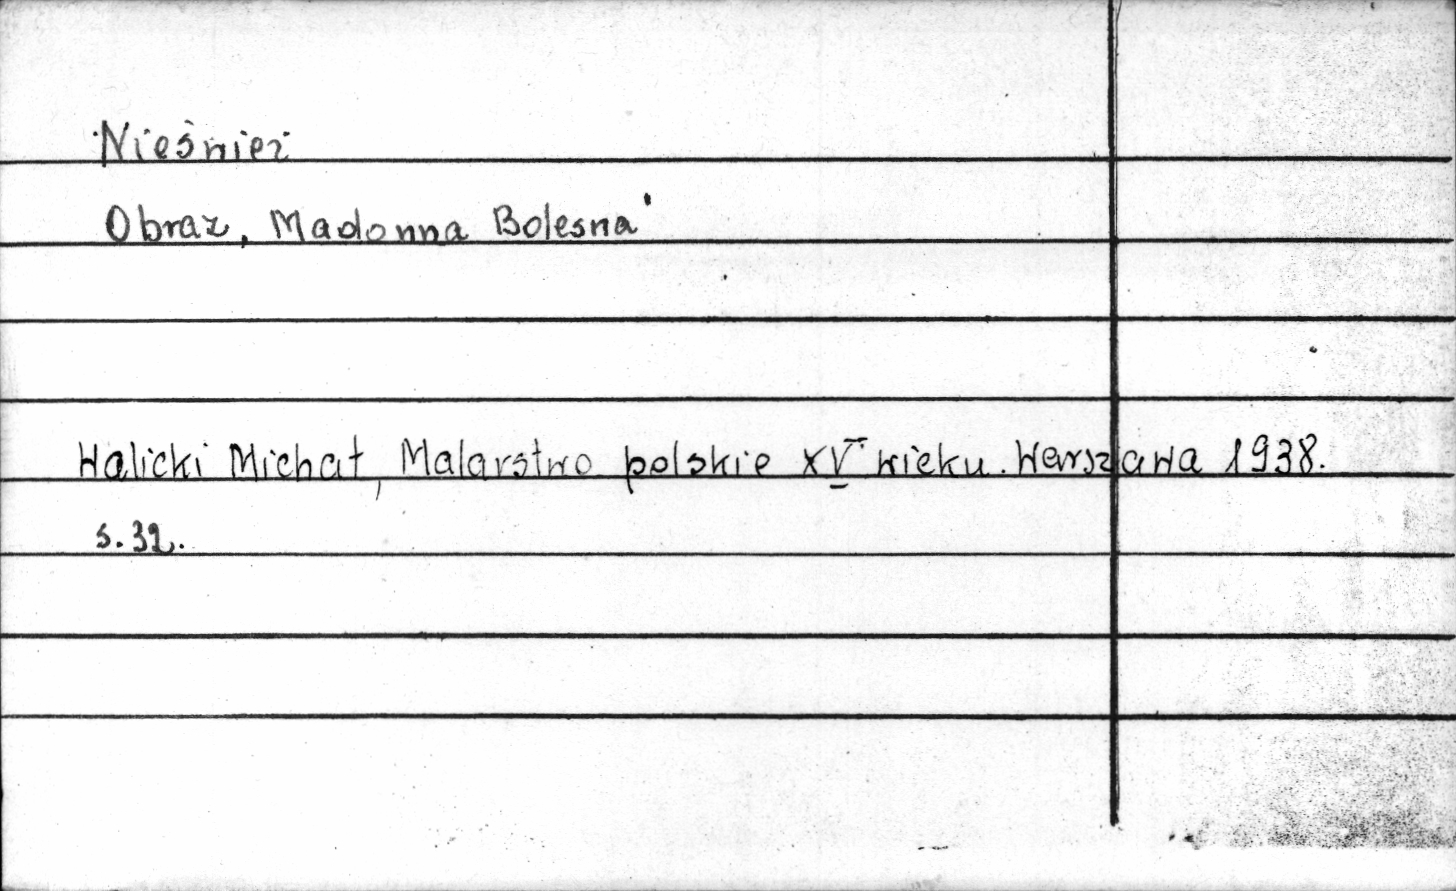 Nieśnież
Obraz, Madonna Bolesna'
Walicki Michał, Malarstwo polskie XV wieku. Warszawa 1938.
s. 32.